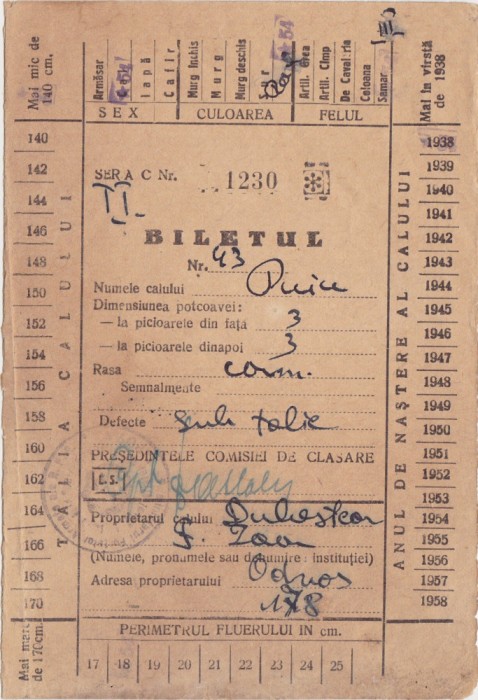 Mai mic de 140 cm.
Armăsar
Iapă
Cafir
Murg închis
Murg
Murg deschis
Artil. grea
Artil. Cîmp
De Cavalerie
Coloana
Samar
III
Mai în vîrstă de 1938
SEX
CULOAREA
FELUL
140
142
144
146
148
150
152
154
156
158
160
162
164
166
168
170
Mai mare de 170cm.
TALIA CALULUI
SERIA C Nr. 1230
II.
BILETUL
Nr. 43
Numele calului Puiu
Dimensiunea potcoavei:
— la picioarele din față 3
— la picioarele dinapoi 3
Rasa com.
Semnalmente
Defecte sub talie
PREȘEDINTELE COMISIEI DE CLASARE
L.S.
Proprietarul calului
F. Ioan
(Numele, pronumele sau denumire instituției)
Adresa proprietarului
178
PERIMETRUL FLUERULUI IN cm.
17 18 19 20 21 22 23 24 25
ANUL DE NAȘTERE AL CALULUI
1938
1939
1940
1941
1942
1943
1944
1945
1946
1947
1948
1949
1950
1951
1952
1953
1954
1955
1956
1957
1958